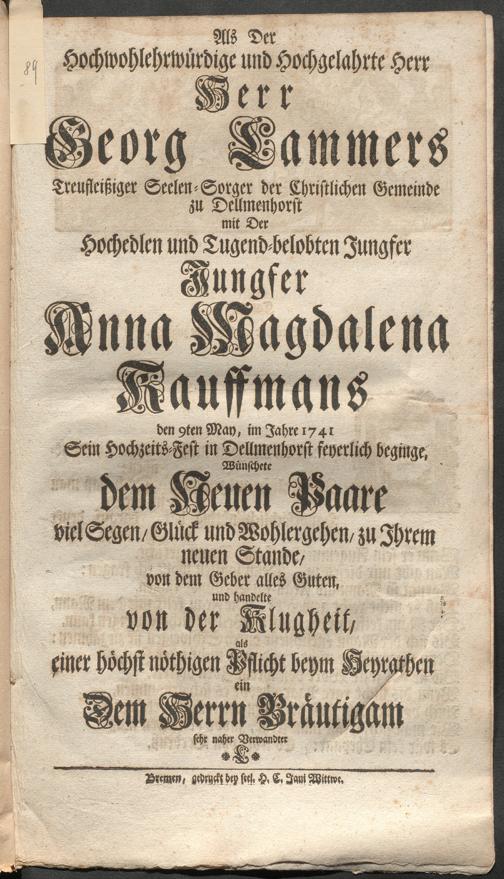 89
Als Der
Hochwohlehrwürdige und Hochgelahrte Herr
Herr
Georg Lammers
Treufleißiger Seelen-Sorger der Christlichen Gemeinde
zu Dellmenhorst
mit Der
Hochedlen und Tugend-belobten Jungfer
Jungfer
Anna Magdalena
Kauffmans
den 9ten May, im Jahre 1741
Sein Hochzeits-Fest in Dellmenhorst feyerlich beginge,
Wünschete
dem Neuen Paare
viel Segen/ Glück und Wohlergehen/ zu Ihrem
neuen Stande/
von dem Geber alles Guten,
und handelte
von der Klugheit/
als
einer höchst nöthigen Pflicht beym Heyrathen
ein
Dem Herrn Bräutigam
sehr naher Verwandter
* L *
Bremen, gedruckt bey seel. H. C. Jani Wittwe.